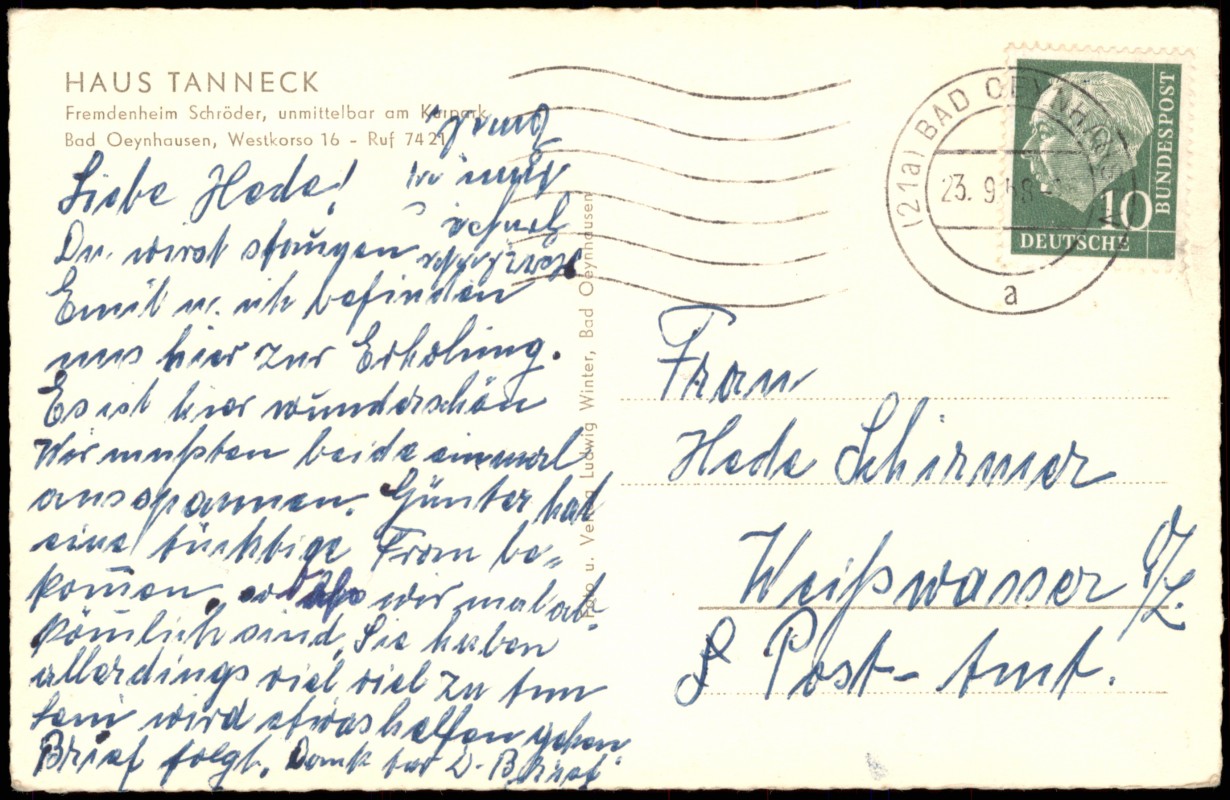 HAUS TANNECK
Fremdenheim Schröder, unmittelbar am Kurpark
Bad Oeynhausen, Westkorso 16 - Ruf 7421
Liebe Hede!
Du wirst staunen
Emil u. ich befinden
uns hier zur Erholung.
Es ist hier wunderschön
Wir mußten beide einmal
ausspannen. Günter hat
eine tüchtige Frau be-
komen, wir mal ab-
kömlich sind. Sie haben
allerdings viel viel zu tun
wird etwas helfen gehen
Brief folgt. Dank für D. Brief
Foto u. Verlag Ludwig Winter, Bad Oeynhausen
(21a) BAD OEYNHAUSEN
23. 9. 58
a
10
DEUTSCHE
BUNDESPOST
Frau
Hede Schirmer
Weißwasser O/L.
Post-Amt.